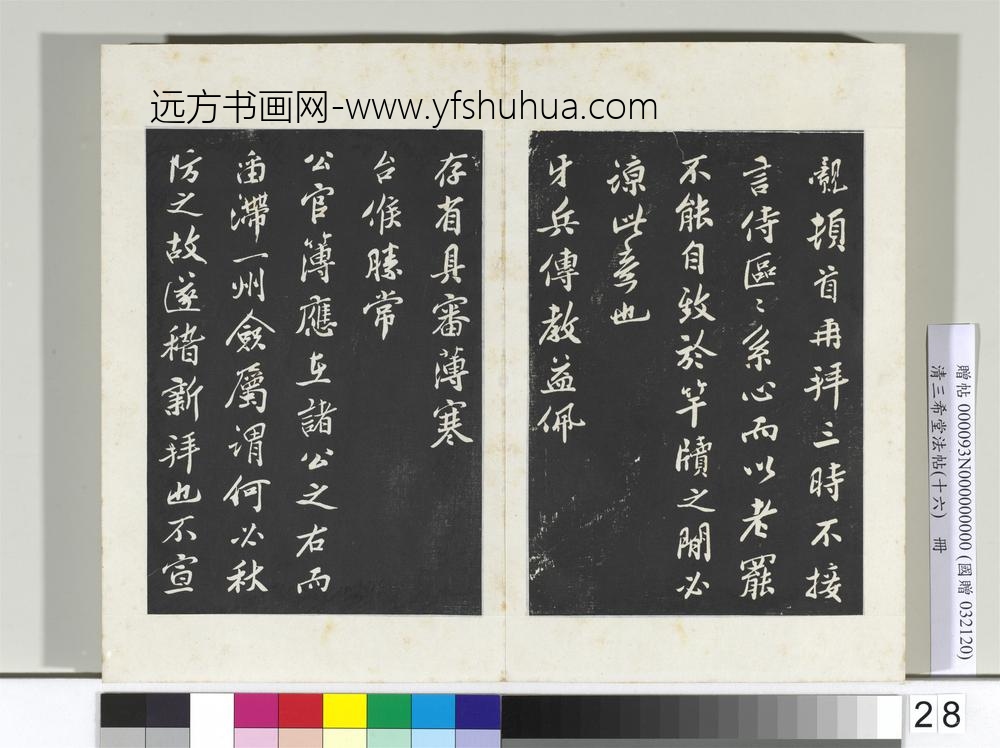 远方书画网-www.yfshuhua.com
覿頓首再拜三時不接
言侍區〻系心而以老罷
不能自致於竿牘之閒必
諒此意也
牙兵傳教益佩
存省具審薄寒
台候勝常
公官簿應在諸公之右而
湮滯一州僉屬謂何必秋
防之故遂稽新拜也不宣
贈帖 000093N000000000 (國贈 032120)
清三希堂法帖(十六) 冊
28